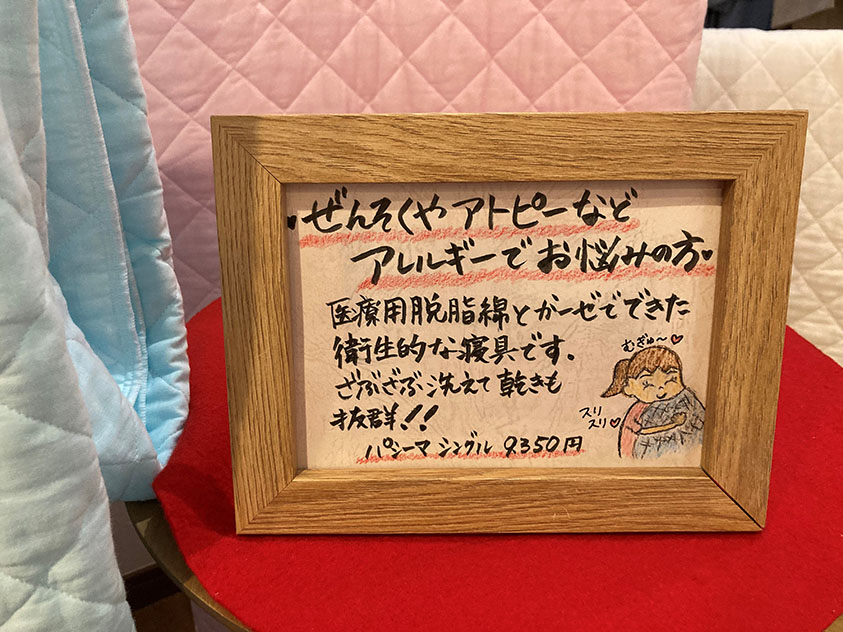 ・ぜんそくやアトピーなど
アレルギーでお悩みの方♥
医療用脱脂綿とガーゼでできた
衛生的な寝具です。
ざぶざぶ洗えて乾きも
抜群!!
パシーマ シングル 9350円
むぎゅ〜♥
スリ
スリ♡